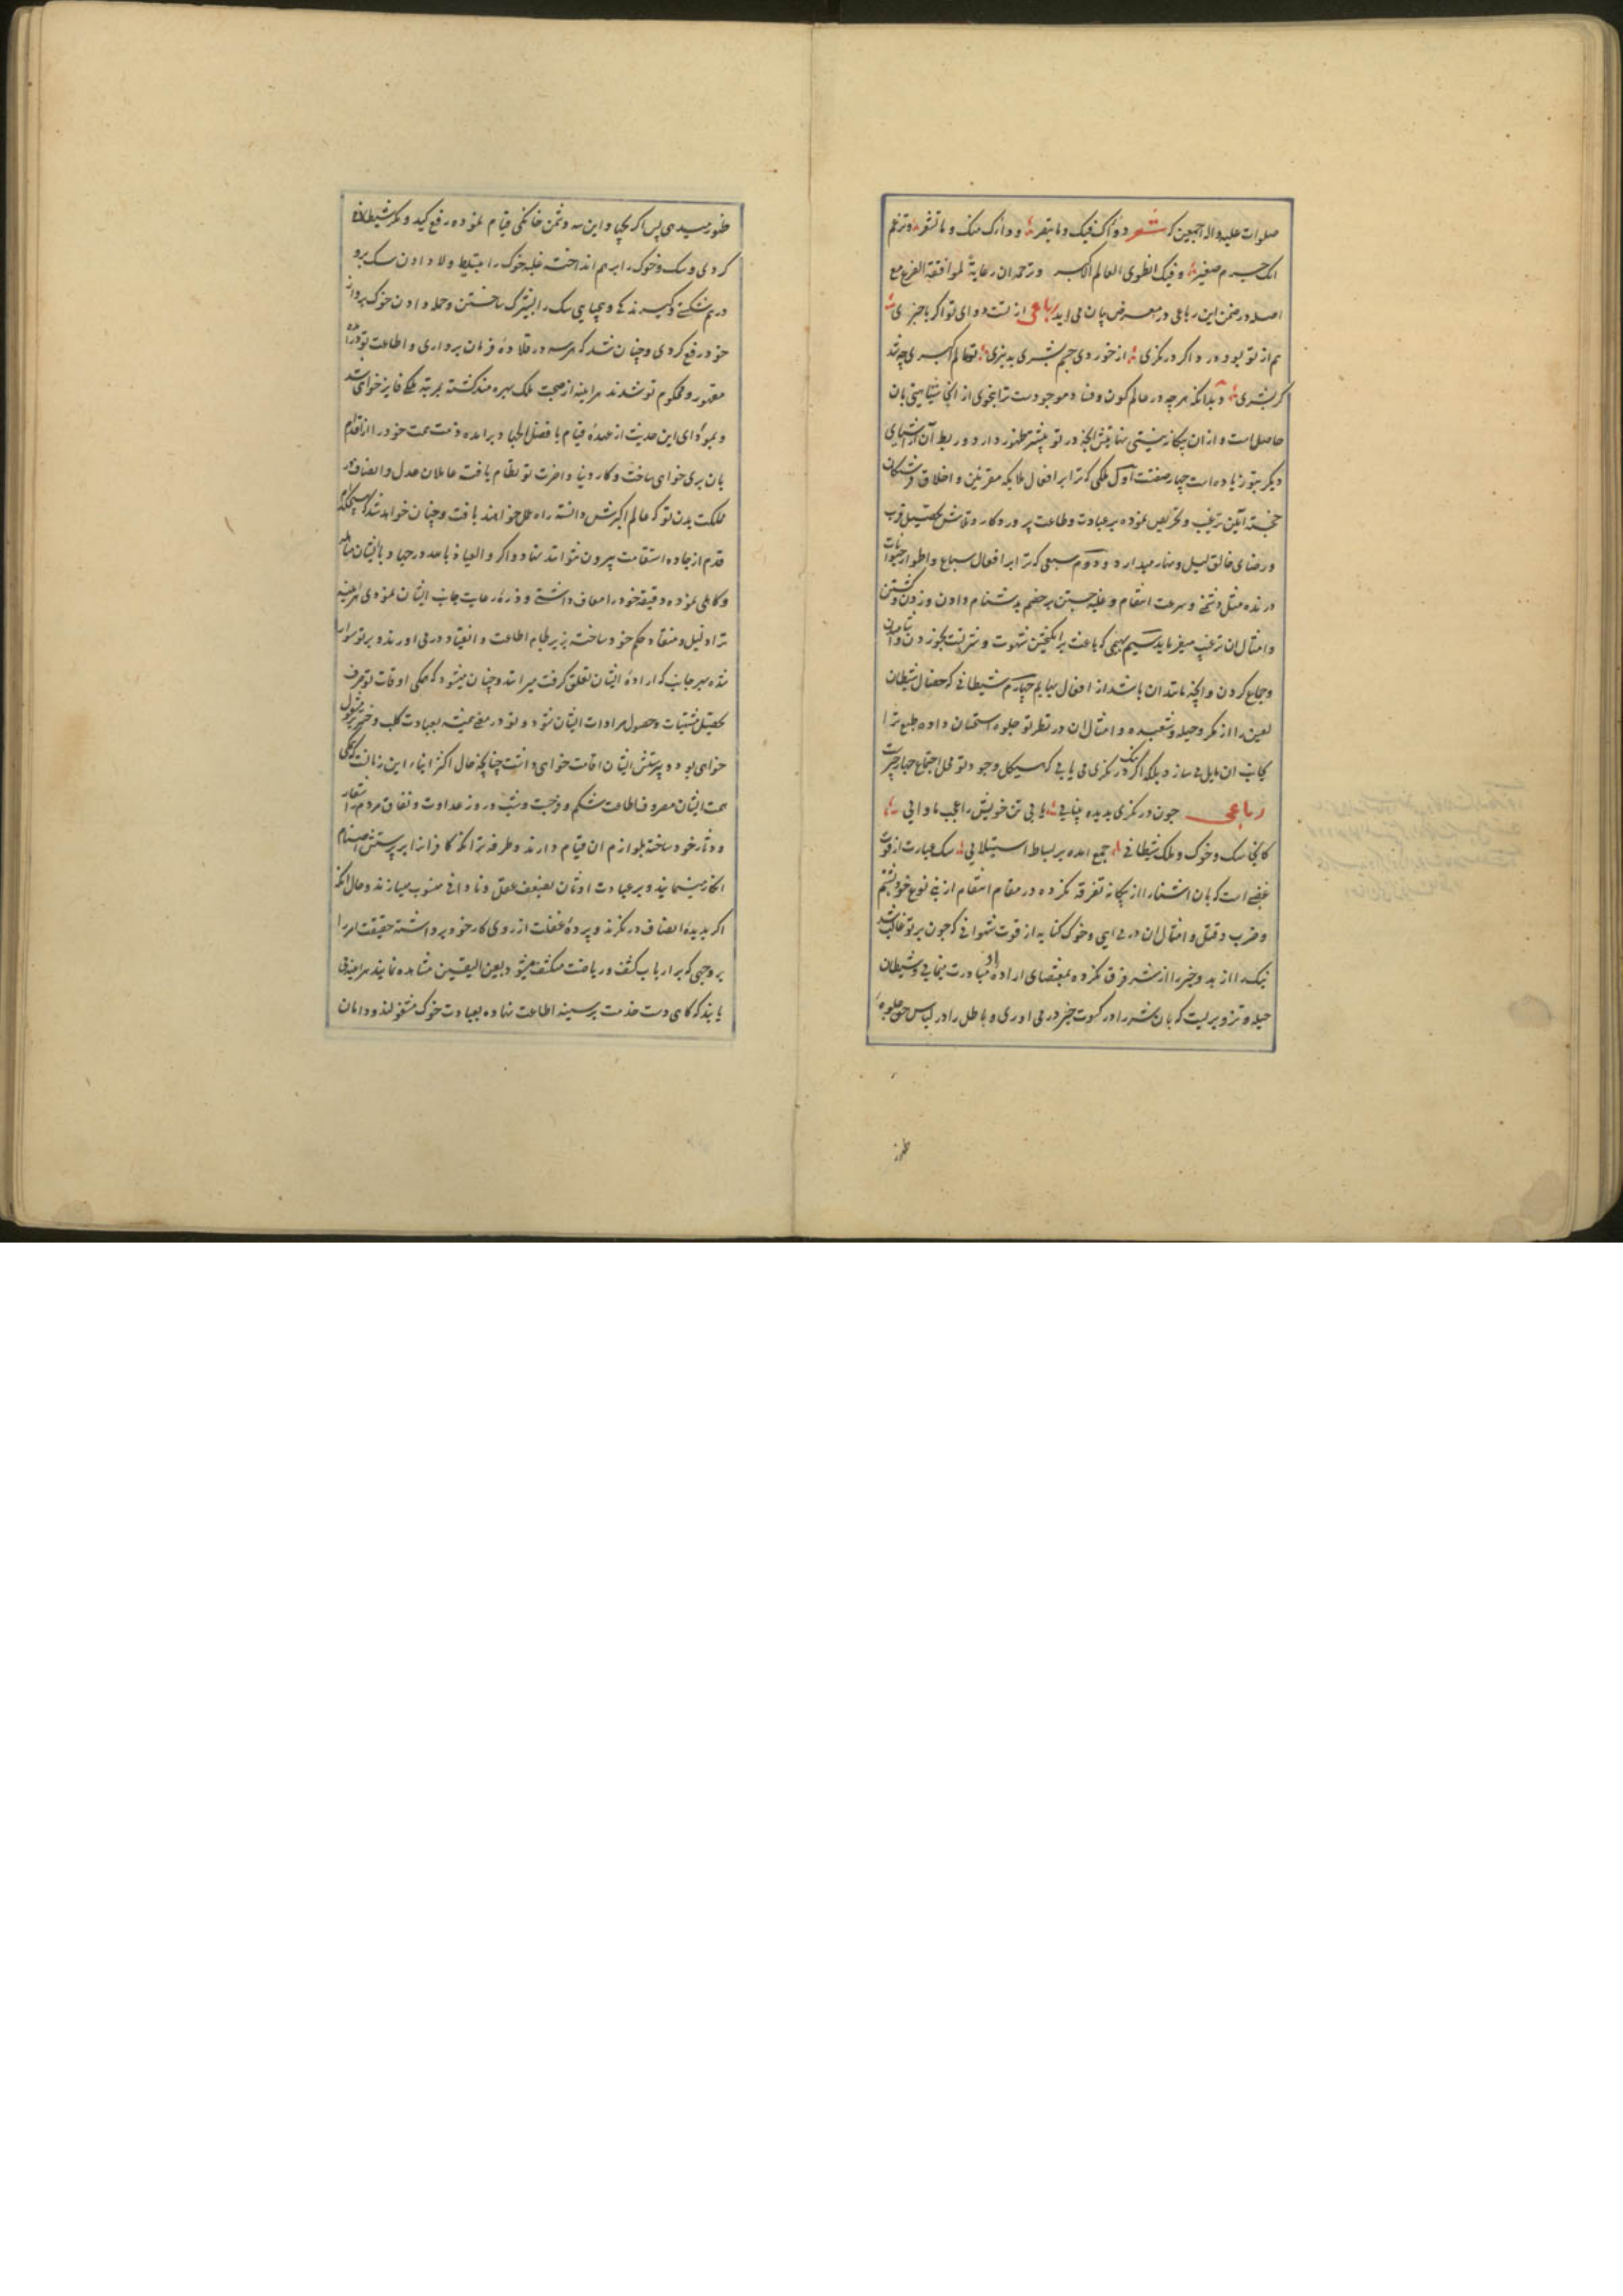 صلوات علیه واله اجمعین که شعر دواک فیک وما تبصر و داؤک منک و ما تشعر وتزعم
انک جرم صغیر وفیک انطوی العالم الاکبر وترجمه ان رعایةً لموافقة الفرع مع
اصله در ضمن این رباعی در معرض بیان می اید رباعی از تست دوای تو اگر باخبری
هم از تو بود درد اگر درنگری از خوردی جرم بشری تو عالم اکبری چه شد
گر بشری و بدانکه هرچه در عالم کون و فساد موجودست ترا بنحوی از انحا شباهتی بان
حاصل است و از ان بیکانه نیستی نهایتش انچه در تو بیشتر ظهور دارد و ربط آن از اشیای
دیگر بتو زیاده است چهار صفتست اول ملکی که ترا بر افعال ملایکه مقربین و اخلاق فرشتکان
خجسته آیین ترغیب و تحریص نموده بر عبادت و طاعت پروردکار و تلاش تحصیل قرب
و رضای خالق لیل و نهار میدارد و دوم سبعی که ترا بر افعال سباع و اطوار حیوانات
درنده مثل و سرعت انتقام و غلبه جستن بر خصم بدشنام دادن و زدن و کشتن
و امثال ان ترغیب میفرماید سیم بهیمی که باعث برانکیختن شهوت و
و جماع کردن و انچه مانند ان باشد از افعال بهایم چهارم شیطانی که خصال شیطان
لعین را از مکر و حیله و شعبده و امثال ان در نظر تو جلوه استحسان داده طبع ترا
بجانب ان مایل می سازد بلکه اگر نیک درنگری می یابی که هیکل وجود تو محل اجتماع چهار چیزست
رباعی چون درنگری بدیده بینایی یابی تن خویش را عجب ماوایی
کانجا سک و خوک و ملک و شیطانی جمع امده بر بساط استیلایی سک عبارت از قوت
غضبی است که بان اشنا را از بیکانه تفرقه نکرده در مقام انتقام از بنی نوع خود بشتم
و ضرب و قتل و امثال ان در می ایی و خوک کنایه از قوت شهوانی که چون بر تو غالب شد
نیک را از بد و خیر را از شر فرق نکرده بمقتضای اراده او مبادرت مینمایی و شیطان
حیله و تزویریست که بان شر را در کسوت خیر در می اوری و باطل را در لباس حق جلوه
ظهور
ظهور میدهی پس اگر بجهاد این سه دشمن خانکی قیام نموده رفع کید و مکر شیطان
کردی و سک و خوک را بر هم انداخته غلبه خوک را بتسلط و لا دادن سک برو
درهم شکستی و کیسه وبیحیایی سک را بتیزک ساختن و حمله دادن خوک بر او از
خود رفع کردی و چنان شد که هر سه در قلاده فرمان برداری و اطاعت تو درآمده
مقهور و محکوم تو شدند هر اینه از صحبت ملک بهره مند کشته بمرتبه ملکی فایز خواهی شد
و بمودای این حدیث از عهده قیام با فضل الجهاد برامده ذمت همت خود را از اقدام
بان بری خواهی ساخت و کار دنیا و اخرت تو نظام یافته عاملان عدل و انصاف در
مملکت بدن تو که عالم اکبرش دانسته راه عمل خواهند یافت و چنان خواهد شد که هیچکدام
قدم از جاده استقامت بیرون نتوانند نهاد و اگر والعیاذ بالله در جهاد با ایشان مساهله
و کاهلی نموده دقیقه خود را معاف داشتی و ذره رعایت جانب ایشان نمودی هراینه
ترا ذلیل و منقاد حکم خود ساخته بزیر لجام اطاعت و انقیاد در می اورند و بر تو سوار
شده بهر جانب که اراده ایشان تعلق کرفت میرانند و چنان میشود که همکی اوقات تو صرف
تحصیل مشتهیات و حصول مرادات ایشان شود و تو در معنی همیشه بعبادت کلب و خنزیر مشغول
خواهی بود و پرستش ایشان اقامت خواهی داشت چنانچه حال اکثر ابناء این زمان است که همکی
همت ایشان مصروف اطاعت شکم و فرجست و شب و روز عداوت و نفاق مردم را شعار
و دثار خود ساخته بلوازم ان قیام دارند و طرفه تر انکه کافرانرا بر پرستش اصنام
انکار مینمایند و بر عبادت اوثان بضعف عقل و نادانی منسوب میسازند و حال انکه
اگر بدیده انصاف درنگرند و پرده غفلت از روی کار خود برداشته حقیقت امر را
بر وجهی که بر ارباب کشف و ریاضت منکشف میشود بعین الیقین مشاهده نمایند هراینه می
یابند که کاهی دست خدمت بر سینه اطاعت نهاده بعبادت خوک مشغولند و دامان